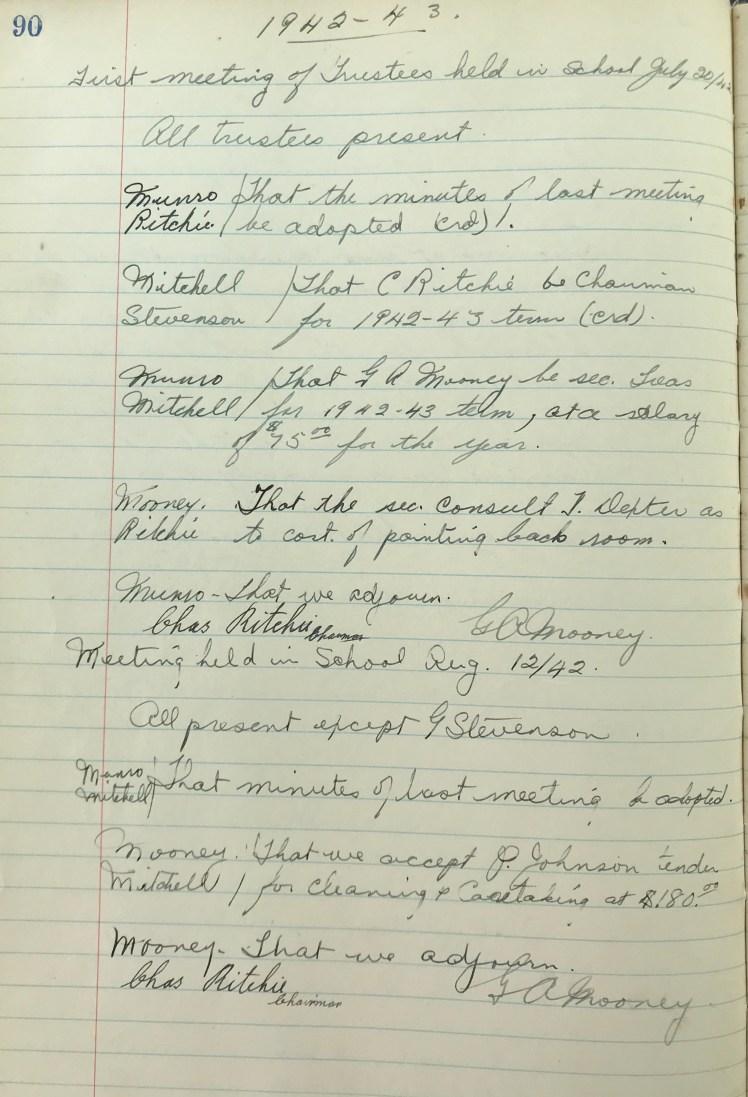 90
1942-43.
First meeting of Trustees held in School July 20/42
All trustees present.
Munro / That the minutes of last meeting
Ritchie / be adopted (crd)!.
Mitchell / That C Ritchie be Chairman
Stevenson / for 1942-43 term (crd).
Munro / That G A Mooney be sec. Treas
Mitchell / for 1942-43 term, at a salary
of $75.00 for the year.
Mooney. That the sec. consult T. Dexter as
Ritchie to cost of painting back room.
Munro - That we adjourn.
Chas Ritchie Chairman G A Mooney.
Meeting held in School Aug. 12/42.
All present except G Stevenson.
Munro / That minutes of last meeting be adopted.
Mitchell /
Mooney. That we accept P. Johnson tender
Mitchell / for cleaning & Caretaking at $180.00
Mooney - That we adjourn.
Chas Ritchie G A Mooney.
Chairman